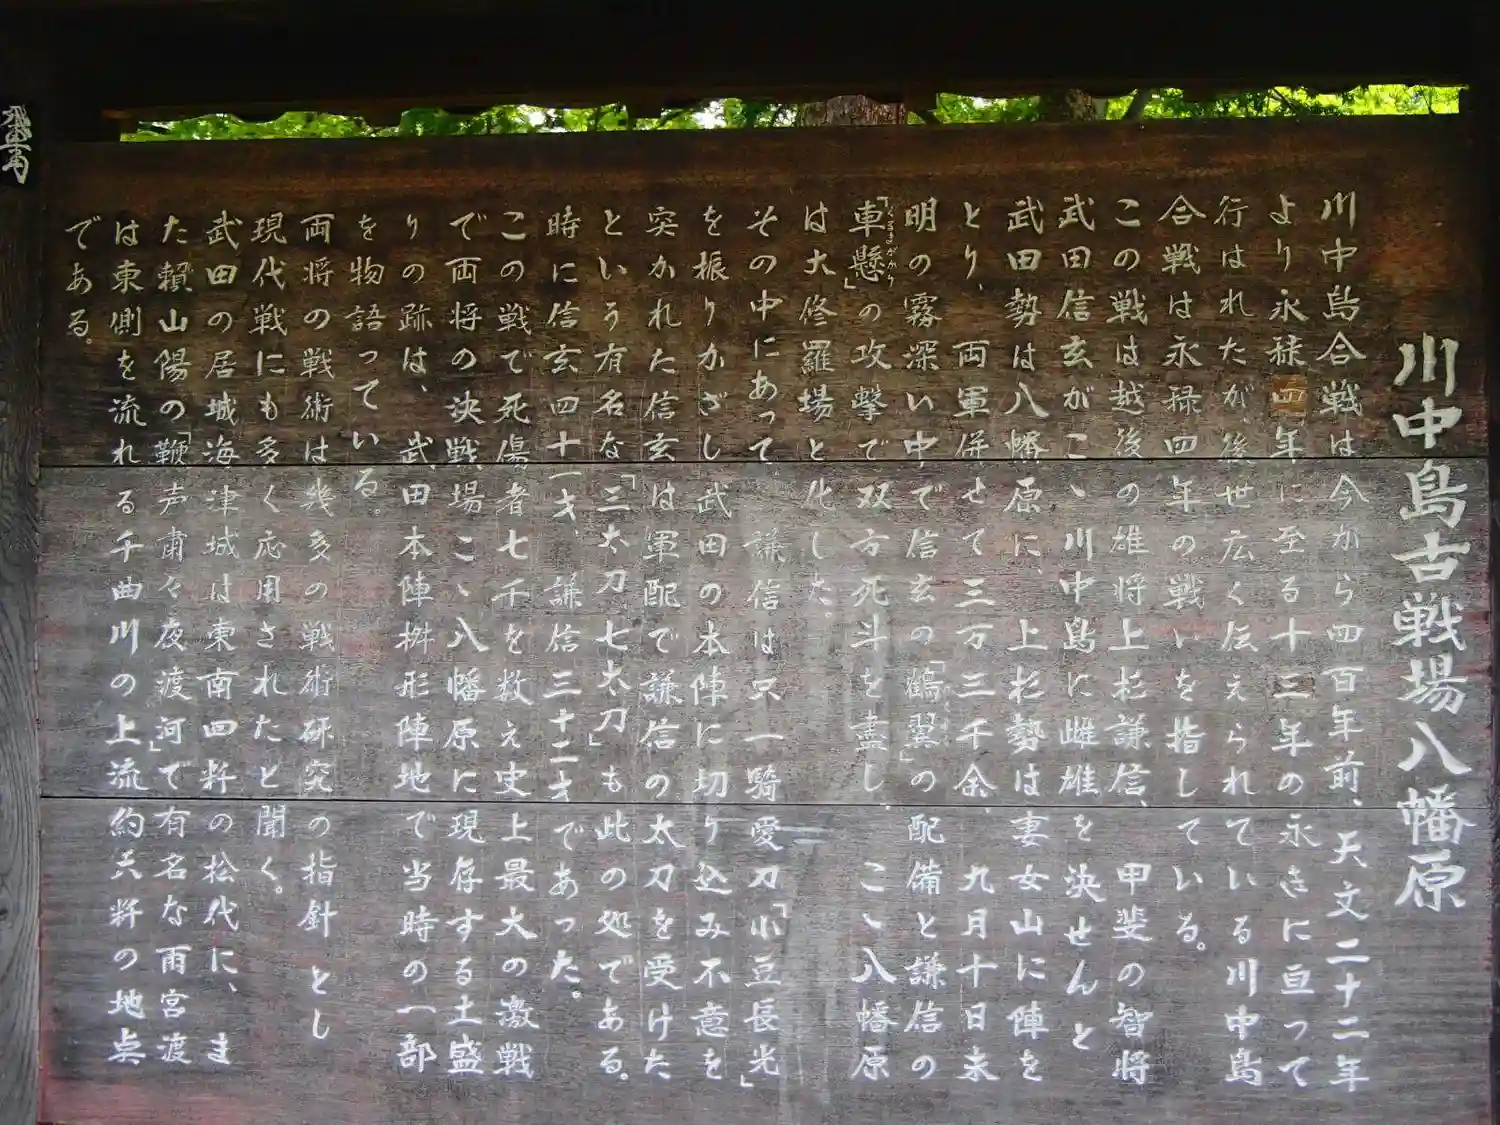 川中島古戦場八幡原
川中島合戦は今から四百年前、天文二十二年
より永禄四年に至る十三年の永きに亘って
行はれたが、後世広く伝えられている川中島
合戦は永禄四年の戦いを指している。
この戦は越後の雄将上杉謙信、甲斐の智将
武田信玄がこゝ川中島に雌雄を決せんと
武田勢は八幡原に、上杉勢は妻女山に陣を
とり、両軍併せて三万三千余、九月十日未
明の霧深い中で信玄の「鶴翼」の配備と謙信の
「車懸」の攻撃で双方死斗を盡し、こゝ八幡原
くるまがかり
は大修羅場と化した
その中にあって、謙信は只一騎愛刀「小豆長光」
を振りかざし武田の本陣に切り込み不意を
突かれた信玄は軍配で謙信の太刀を受けた
という有名な「三太刀七太刀」も此の処である。
時に信玄四十一才、謙信三十二才であった。
この戦で死傷者七千を数え史上最大の激戦
で両将の決戦場こゝ八幡原に現存する土盛
りの跡は、武田本陣桝形陣地で当時の一部
を物語っている。
両将の戦術は幾多の戦術研究の指針とし
現代戦にも多く応用されたと聞く。
武田の居城海津城は東南四粁の松代に、ま
た頼山陽の「鞭声粛々夜渡河」で有名な雨宮渡
は東側を流れる千曲川の上流約六粁の地点
である。